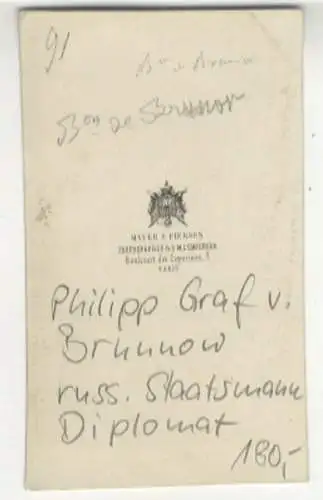 91
Bon de Brunnow
MAYER & PIERSON
PHOTOGRAPHES DE S.M. L'EMPEREUR
Boulevart des Capucines, 3
PARIS
Philipp Graf v.
Brunnow
russ. Staatsmann
Diplomat
180,-